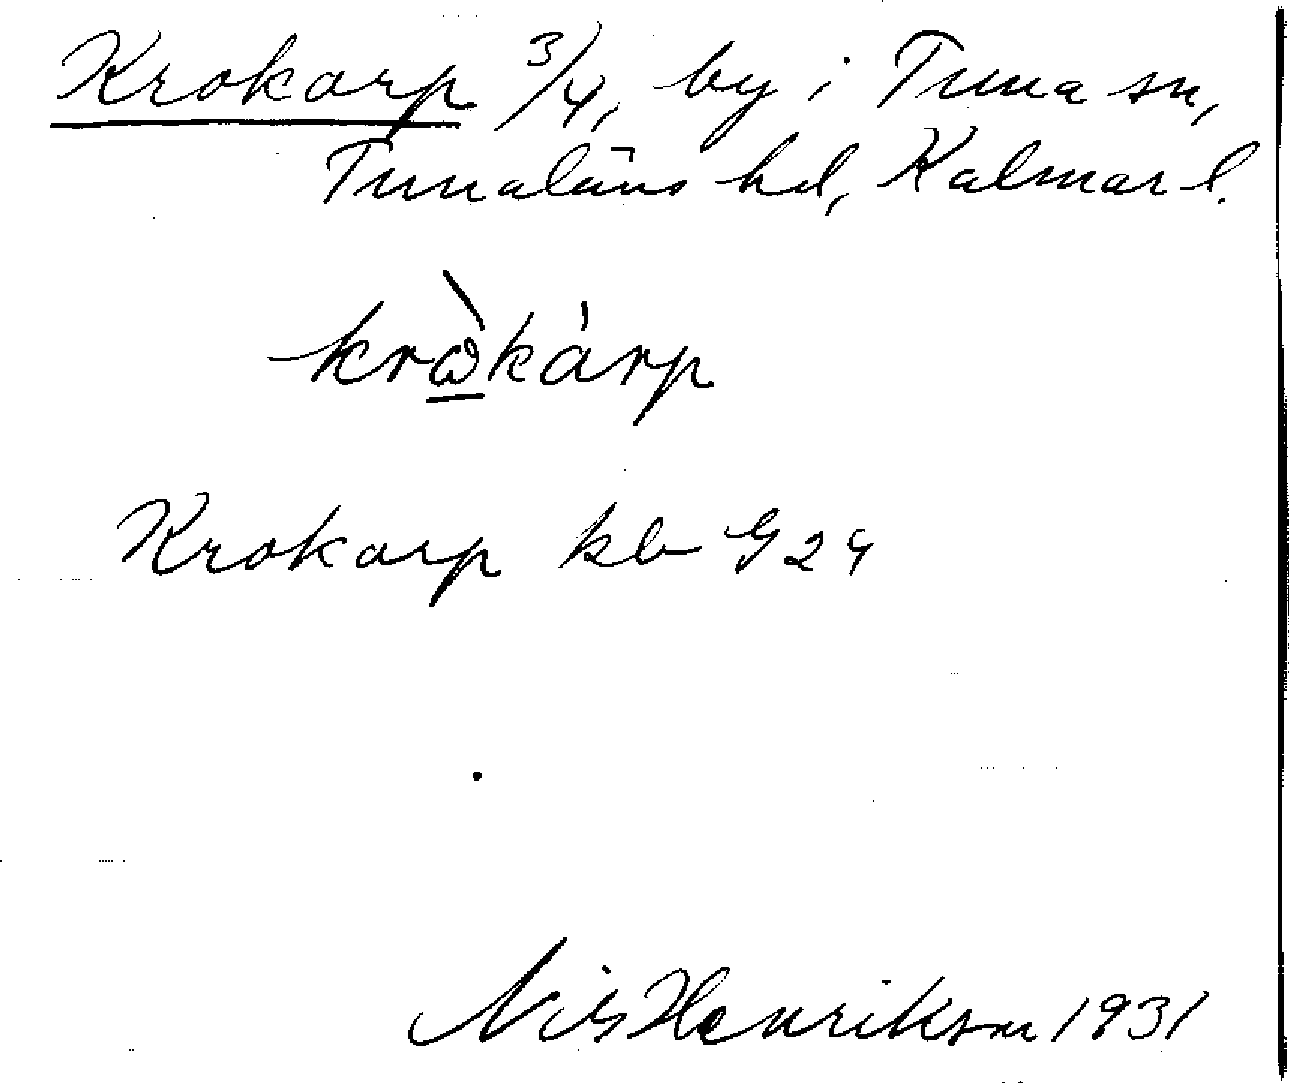 Krokarp 3/4, by i Tuna sn,
Tunaläns hd, Kalmar l.
krὼ̲kàrp
Krokarp kb G24
Nils Henrikson 1931